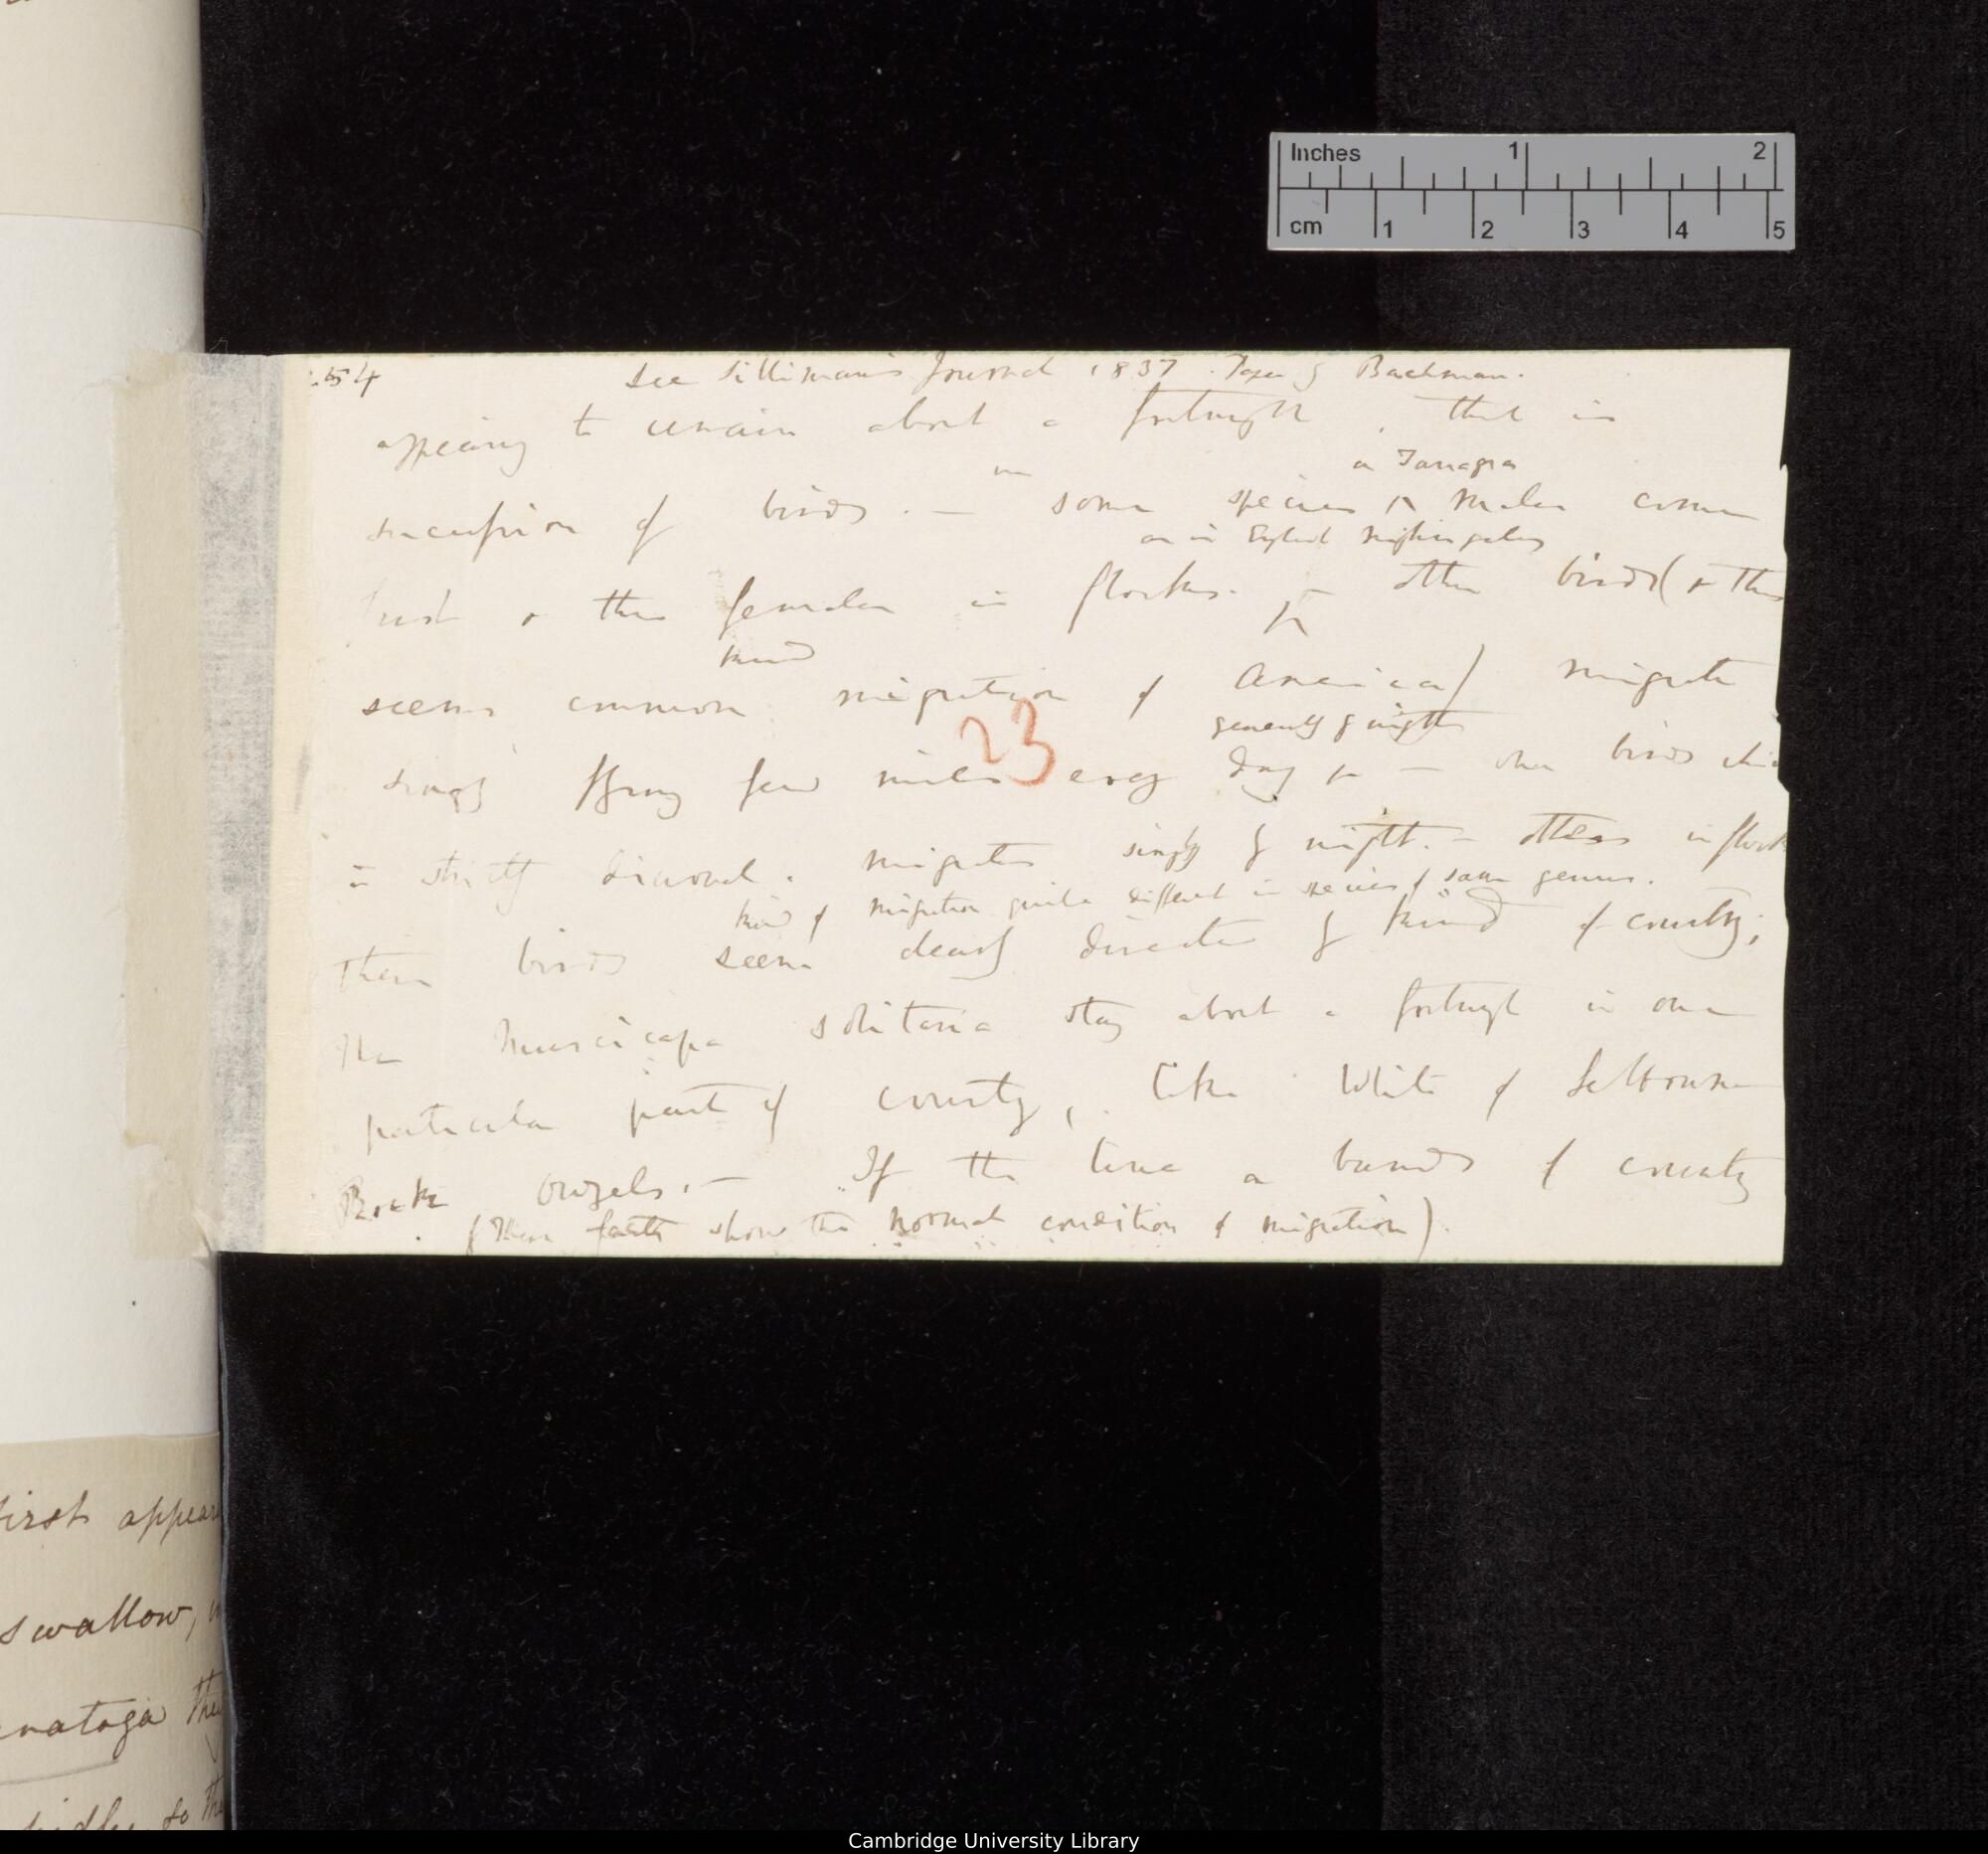 Inches 1 2
cm 1 2 3 4 5
54 See Silliman's Journal 1837. Paper by Bachman.
appearing to remain about a fortnight, that is
a Tanagra
succession of birds. — In some species ^ males come
as in England nightingales
first & then females in flocks. ^ — other birds (& this
kind
seems common migration of America) migrate
23
generally by night
singly flying few miles every day ^ — other birds
is strictly diurnal. migrates singly by night. — others in flocks
kind of migration quite different in species of same genus.
These birds seem clearly directed by kind of country;
The Muscicapa solitaria stay about a fortnight in one
particular part of country, like White of Selbourne
Rock Ouzels. — If the line a bands of country
(These facts show the normal condition of migration).
first appear
swallow,
to the
Cambridge University Library